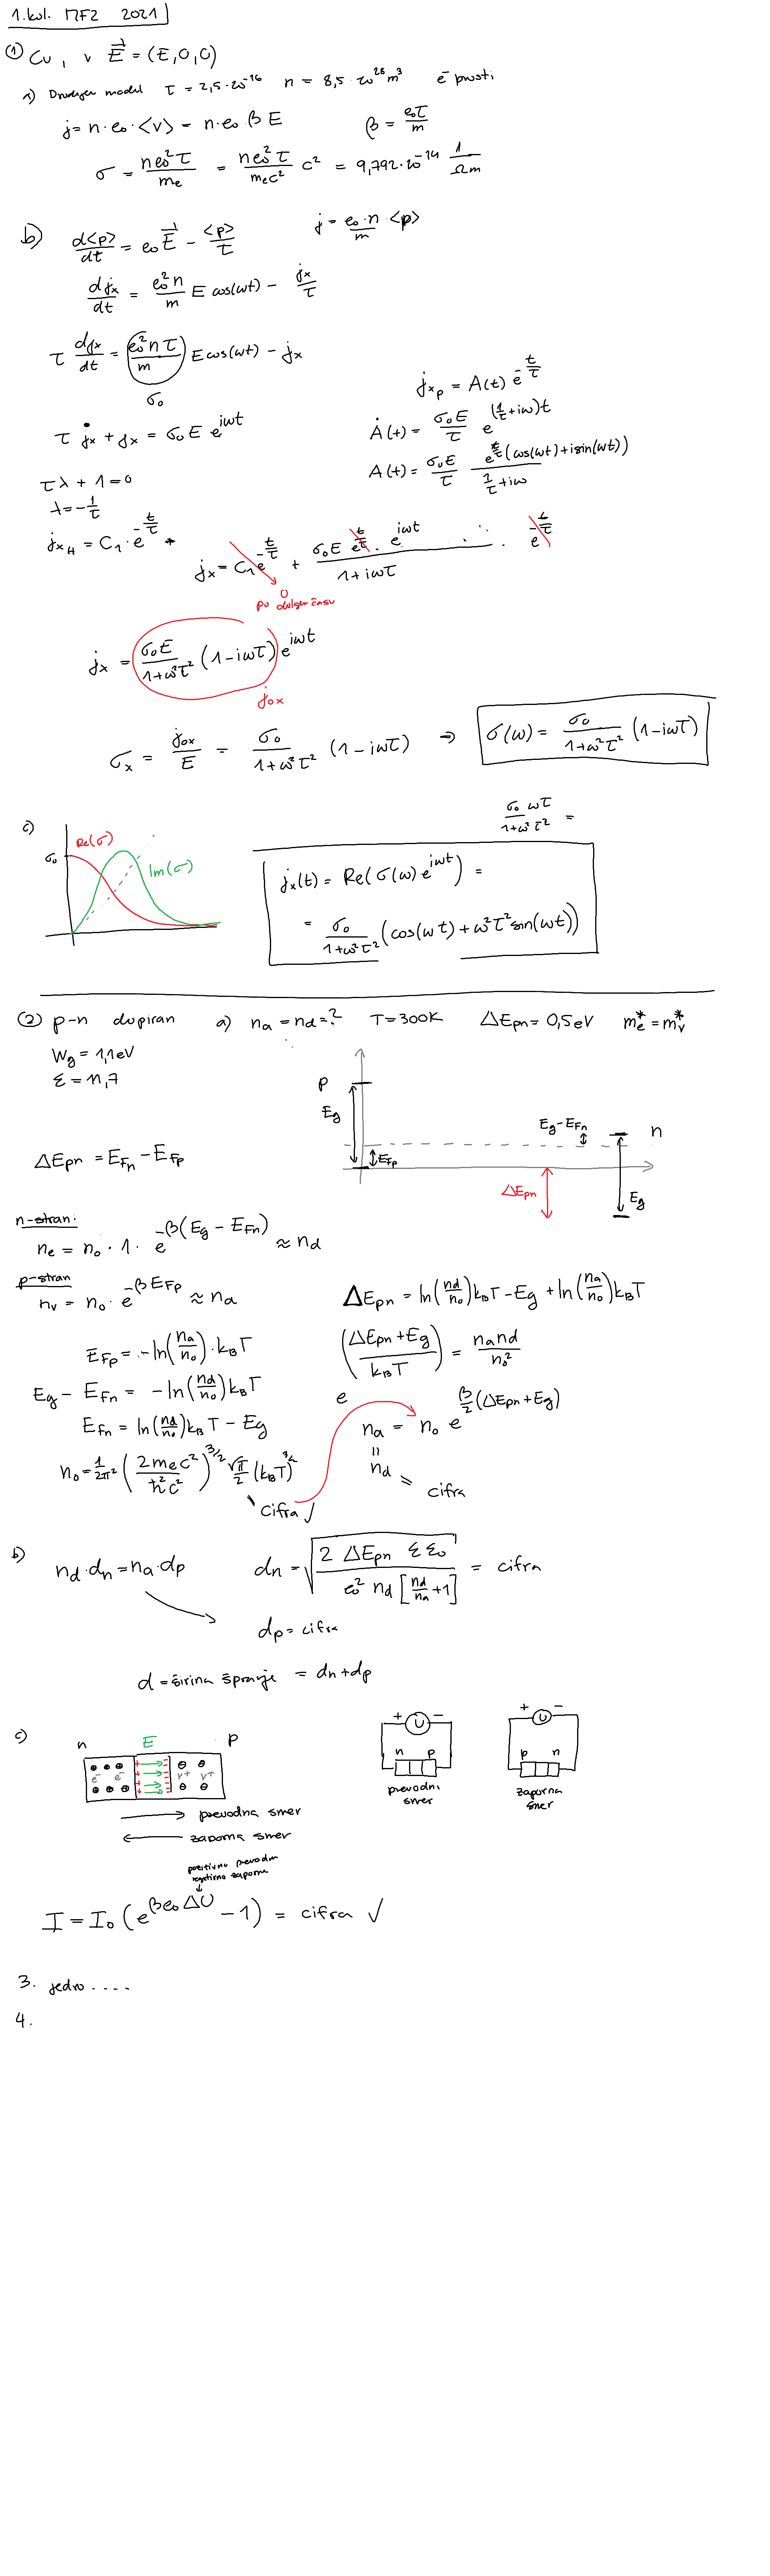 1. kol. MF2 2021
① Cu, v E⃗ = (E,0,0)
a) Drudejev model τ = 2,5·10⁻¹⁶ n = 8,5·10²⁸ m³ e⁻ prosti
j = n·e₀·<v> = n·e₀ β E β = e₀τ/m
σ = ne₀²τ/mₑ = ne₀²τ/mₑc² c² = 9,792·10⁻¹⁴ 1/Ωm
b) d<p>/dt = e₀E⃗ - <p>/τ j = e₀·n/m <p>
djₓ/dt = e₀²n/m E cos(ωt) - jₓ/τ
τ djₓ/dt = (e₀²nτ/m) E cos(ωt) - jₓ
σ₀
jₓₚ = A(t) e^(-t/τ)
τ j̇ₓ + jₓ = σ₀ E e^(iωt) Ȧ(t) = σ₀E/τ e^((1/τ+iω)t)
τλ + 1 = 0 A(t) = σ₀E/τ e^(t/τ)(cos(ωt)+isin(ωt))/(1/τ+iω)
λ = -1/τ
jₓH = C₁·e^(-t/τ) +
jₓ = C₁e^(-t/τ) + σ₀E e^(t/τ)·e^(iωt)/(1+iωτ) · e^(-t/τ)
0
po dolgem času
jₓ = σ₀E/(1+ω²τ²) (1-iωτ) e^(iωt)
j₀ₓ
σₓ = j₀ₓ/E = σ₀/(1+ω²τ²) (1-iωτ) ⇒ σ(ω) = σ₀/(1+ω²τ²) (1-iωτ)
c) σ₀ Re(σ) Im(σ)
σ₀ωτ/(1+ω²τ²) =
jₓ(t) = Re(σ(ω)e^(iωt)) =
= σ₀/(1+ω²τ²) (cos(ωt)+ω²τ²sin(ωt))
② p-n dopiran a) nₐ = n_d = ? T=300K ΔEpn = 0,5eV mₑ* = mᵥ*
Wg = 1,1eV
ε = 11,7
p Eg E_Fp Eg-E_Fn n ΔEpn Eg
ΔEpn = E_Fn - E_Fp
n-stran:
nₑ = n₀·1·e^(-β(Eg-E_Fn)) ≈ n_d
p-stran
nᵥ = n₀·e^(-βE_Fp) ≈ nₐ
ΔEpn = ln(n_d/n₀)k_BT - Eg + ln(nₐ/n₀)k_BT
E_Fp = -ln(nₐ/n₀)·k_BT
e^((ΔEpn+Eg)/k_BT) = nₐn_d/n₀²
Eg - E_Fn = -ln(n_d/n₀)k_BT
E_Fn = ln(n_d/n₀)k_BT - Eg
nₐ = n₀ e^(β/2(ΔEpn+Eg))
=
n_d = cifra
n₀ = 1/2π² (2mₑc²/ħ²c²)^(3/2) √π/2 (k_BT)^(3/2)
cifra ✓
b) n_d·dₙ = nₐ·dₚ dₙ = √(2 ΔEpn εε₀/(e₀² n_d [n_d/nₐ+1])) = cifra
dₚ = cifra
d = širina špranje = dₙ+dₚ
c) n E p
e⁻ e⁻ v⁺ v⁺
prevodna smer
zaporna smer
+ U -
n p
prevodni
smer
+ U -
p n
zaporna
smer
pozitivno prevodni
negativno zaporna
I = I₀ (e^(βe₀ΔU) - 1) = cifra ✓
3. jedro ....
4.